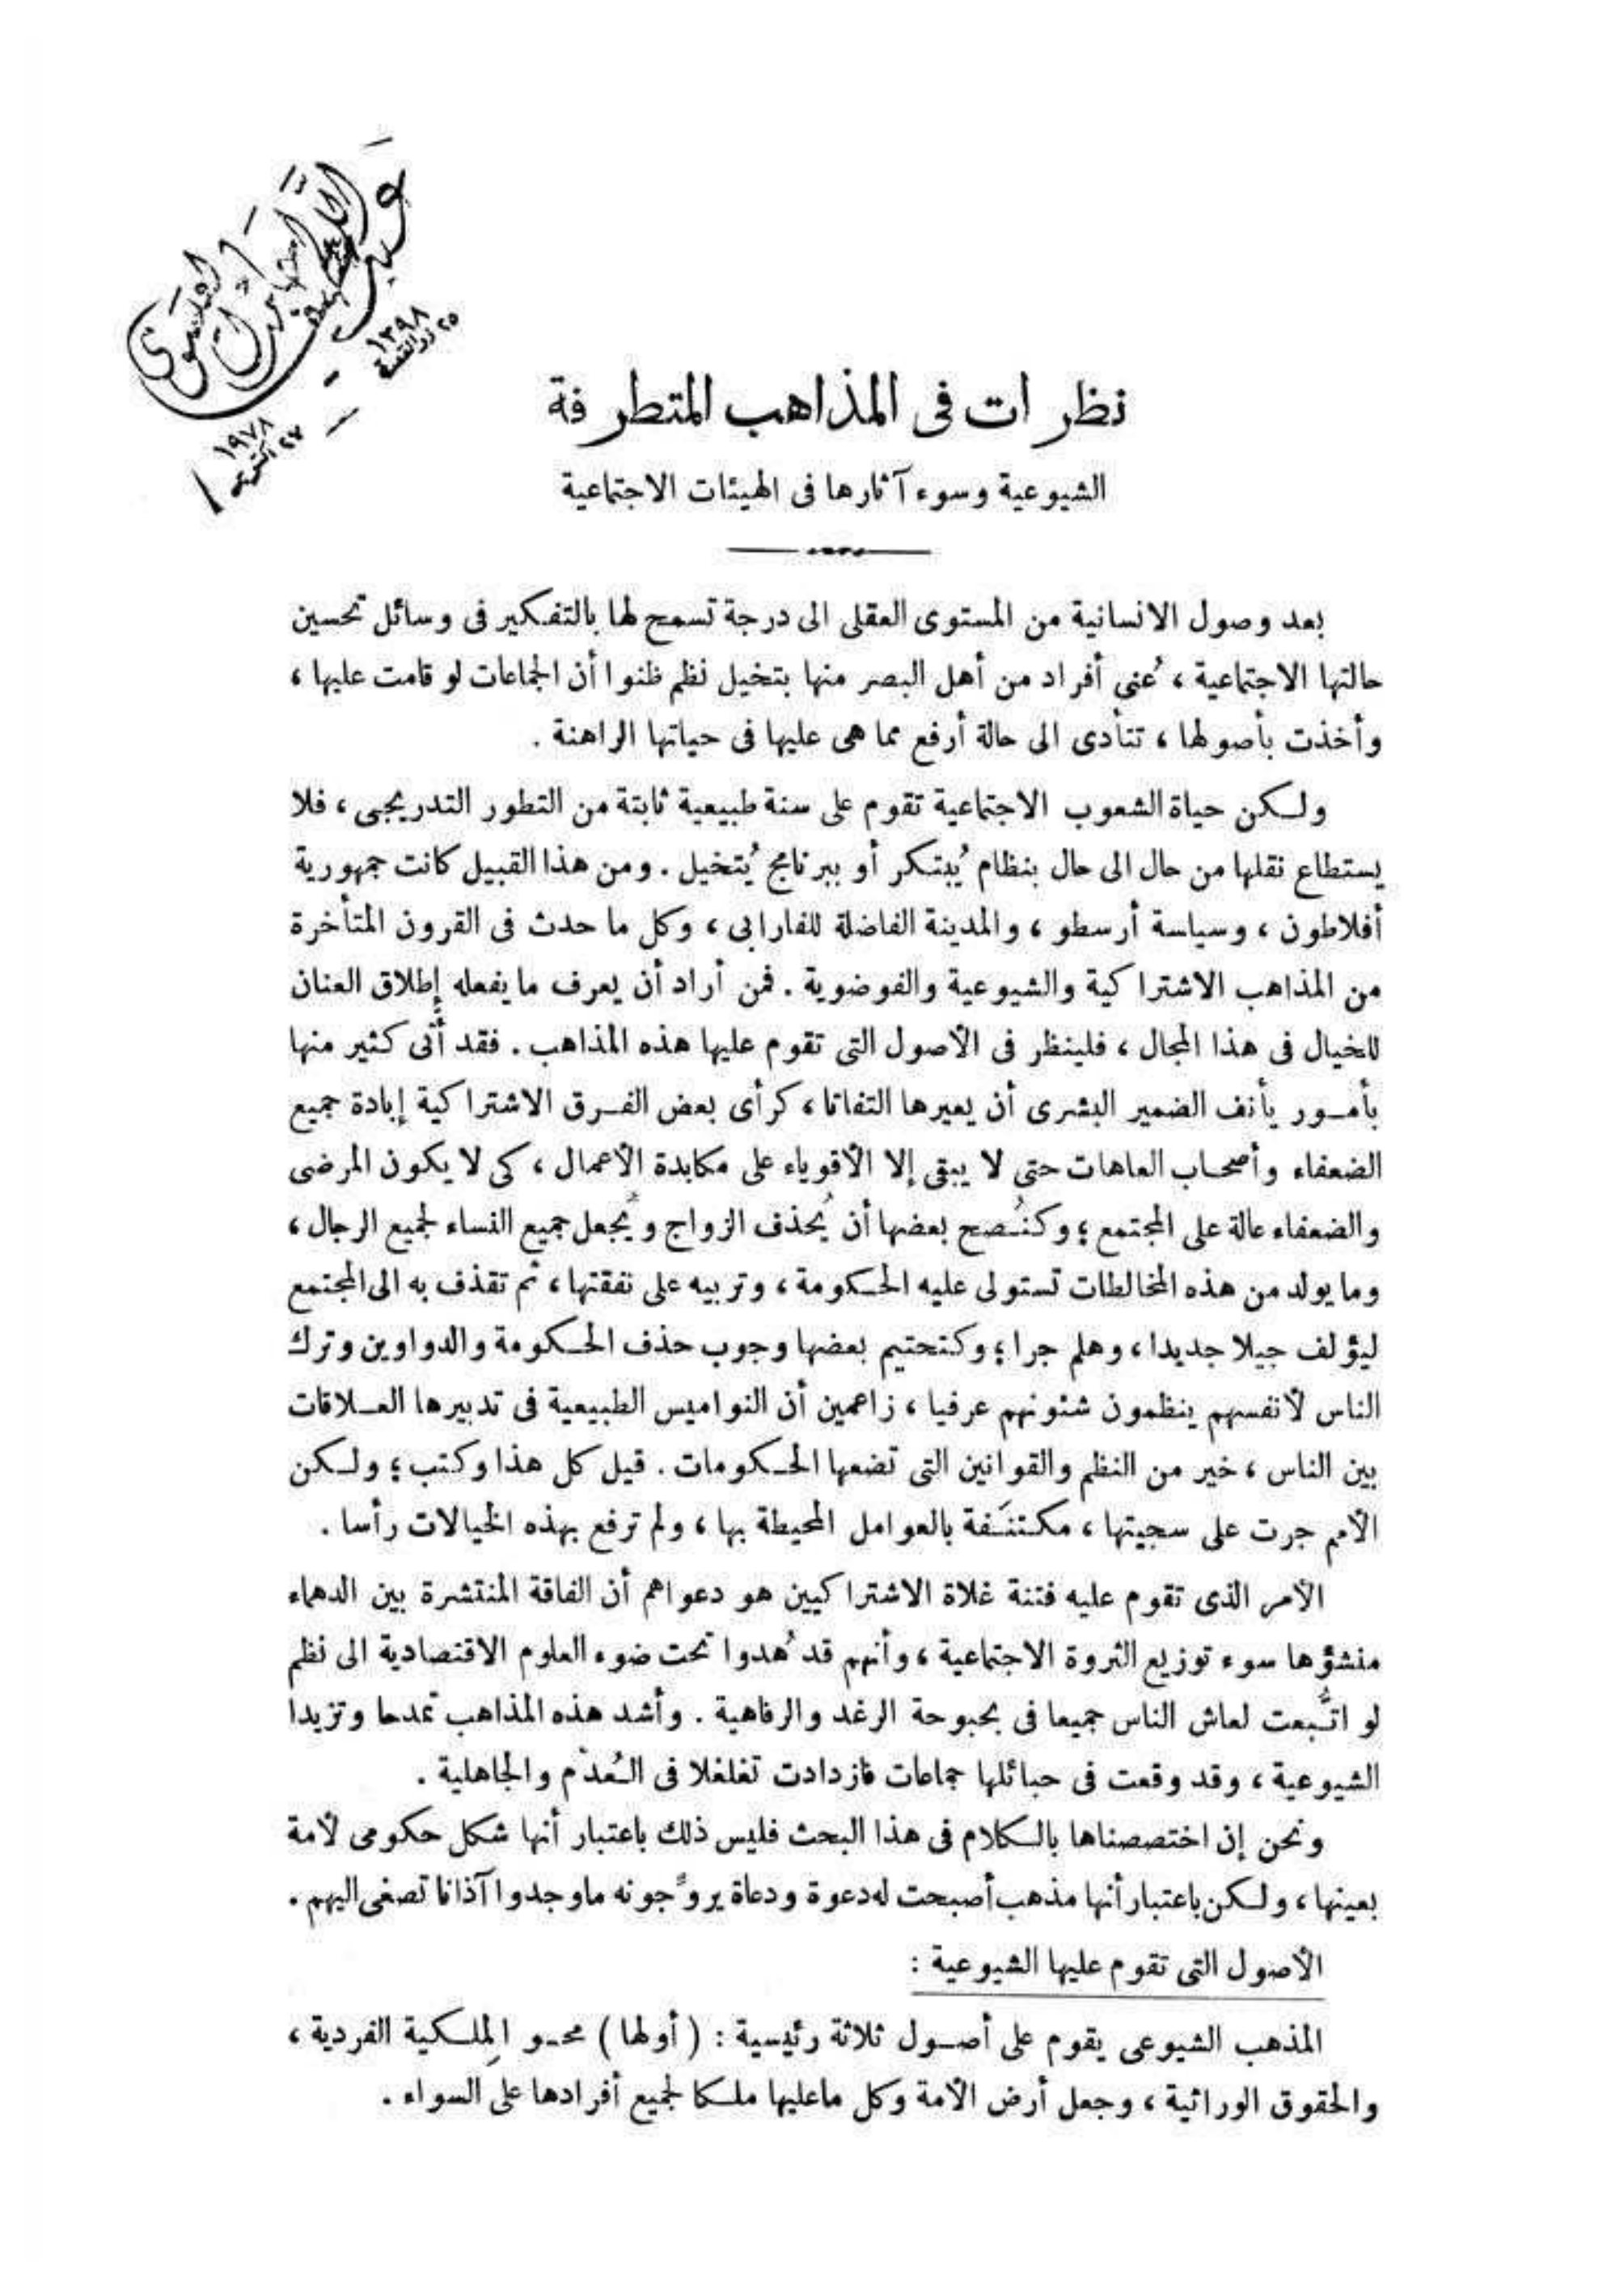 ٢٥ ذو القعدة
١٣٩٨
٢٧ أكتوبر
١٩٧٨
نظرات فى المذاهب المتطرفة
الشيوعية وسوء آثارها فى الهيئات الاجتماعية
بعد وصول الانسانية من المستوى العقلى الى درجة تسمح لها بالتفكير فى وسائل تحسين
حالتها الاجتماعية ، عُنى أفراد من أهل البصر منها بتخيل نظم ظنوا أن الجماعات لو قامت عليها ،
وأخذت بأصولها ، تتأدى الى حالة أرفع مما هى عليها فى حياتها الراهنة .
ولكن حياة الشعوب الاجتماعية تقوم على سنة طبيعية ثابتة من التطور التدريجى ، فلا
يستطاع نقلها من حال الى حال بنظام يُبتكر أو ببرنامج يُتخيل . ومن هذا القبيل كانت جمهورية
أفلاطون ، وسياسة أرسطو ، والمدينة الفاضلة للفارابى ، وكل ما حدث فى القرون المتأخرة
من المذاهب الاشتراكية والشيوعية والفوضوية . فمن أراد أن يعرف ما يفعله إطلاق العنان
للخيال فى هذا المجال ، فلينظر فى الأصول التى تقوم عليها هذه المذاهب . فقد أتى كثير منها
بأمور يأنف الضمير البشرى أن يعيرها التفاتا ، كرأى بعض الفرق الاشتراكية إبادة جميع
الضعفاء وأصحاب العاهات حتى لا يبقى إلا الأقوياء على مكابدة الأعمال ، كى لا يكون المرضى
والضعفاء عالة على المجتمع ؛ وكنُصح بعضها أن يُحذف الزواج ويُجعل جميع النساء لجميع الرجال ،
وما يولد من هذه المخالطات تستولى عليه الحكومة ، وتربيه على نفقتها ، ثم تقذف به الى المجتمع
ليؤلف جيلا جديدا ، وهلم جرا ؛ وكتحتيم بعضها وجوب حذف الحكومة والدواوين وترك
الناس لأنفسهم ينظمون شئونهم عرفيا ، زاعمين أن النواميس الطبيعية فى تدبيرها العلاقات
بين الناس ، خير من النظم والقوانين التى تضعها الحكومات . قيل كل هذا وكتب ؛ ولكن
الأمم جرت على سجيتها ، مكتنَفة بالعوامل المحيطة بها ، ولم ترفع بهذه الخيالات رأسا .
الأمر الذى تقوم عليه فتنة غلاة الاشتراكيين هو دعواهم أن الفاقة المنتشرة بين الدهماء
منشؤها سوء توزيع الثروة الاجتماعية ، وأنهم قد هُدوا تحت ضوء العلوم الاقتصادية الى نظم
لو اتُّبعت لعاش الناس جميعا فى بحبوحة الرغد والرفاهية . وأشد هذه المذاهب تمدحا وتزيدا
الشيوعية ، وقد وقعت فى حبائلها جماعات فازدادت تغلغلا فى العُدْم والجاهلية .
ونحن إن اختصصناها بالكلام فى هذا البحث فليس ذلك باعتبار أنها شكل حكومى لأمة
بعينها ، ولكن باعتبار أنها مذهب أصبحت له دعوة ودعاة يروّجونه ماوجدوا آذانا تصغى اليهم .
الأصول التى تقوم عليها الشيوعية :
المذهب الشيوعى يقوم على أصول ثلاثة رئيسية : ( أولها ) محو المِلكية الفردية ،
والحقوق الوراثية ، وجعل أرض الأمة وكل ماعليها ملكا لجميع أفرادها على السواء .